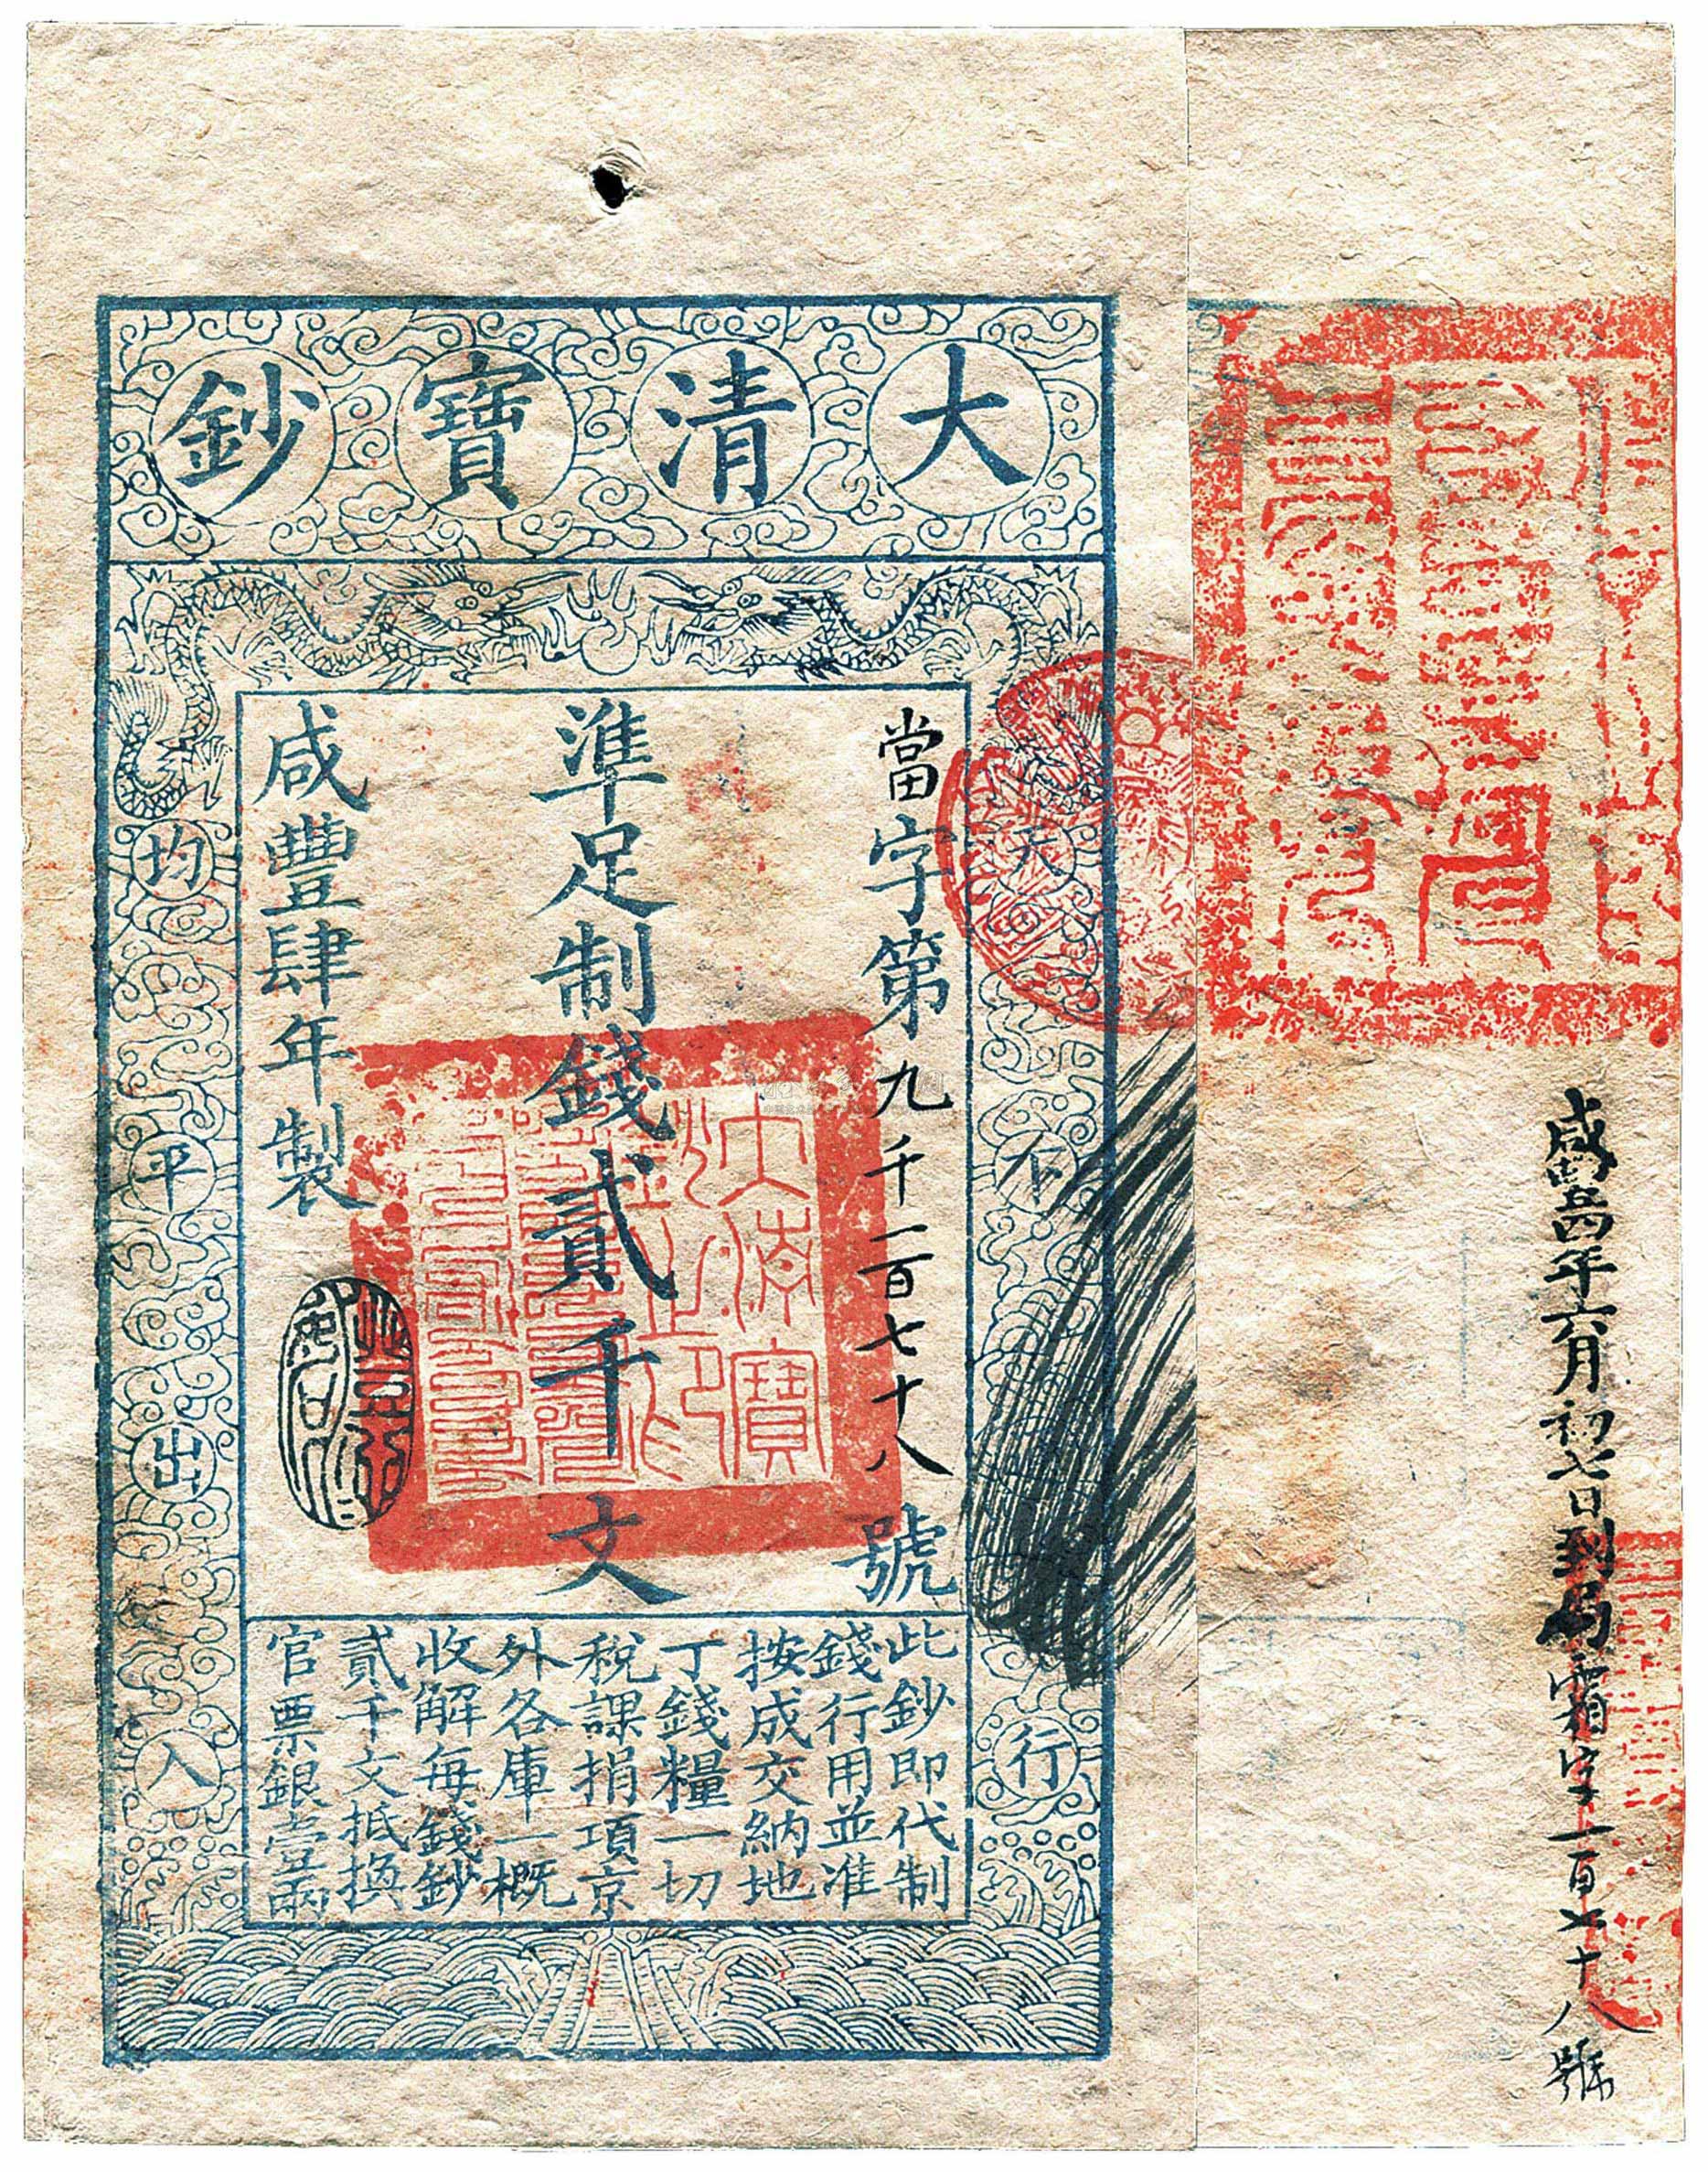 大清寶鈔
天下行
當字第九千一百七十八號
準足制錢貳千文
咸豐肆年製
均平出入
此鈔即代制
錢行用並准
按成交納地
丁錢糧一切
稅課捐項京
外各庫一概
收解每錢鈔
貳千文抵換
官票銀壹兩
大清寶鈔之印
咸豐四年六月初七日到局霜字一百七十八號